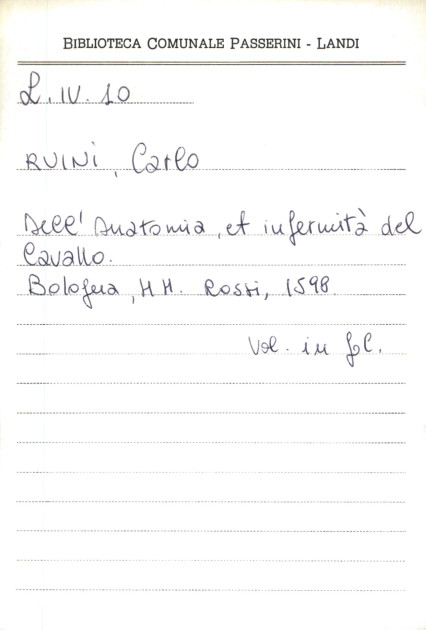 BIBLIOTECA COMUNALE PASSERINI - LANDI
L. IV. 10
RUINI, Carlo
Dell' Anatomia, et infermità del
Cavallo.
Bologna, HH. Rossi, 1598
Vol. in fol.